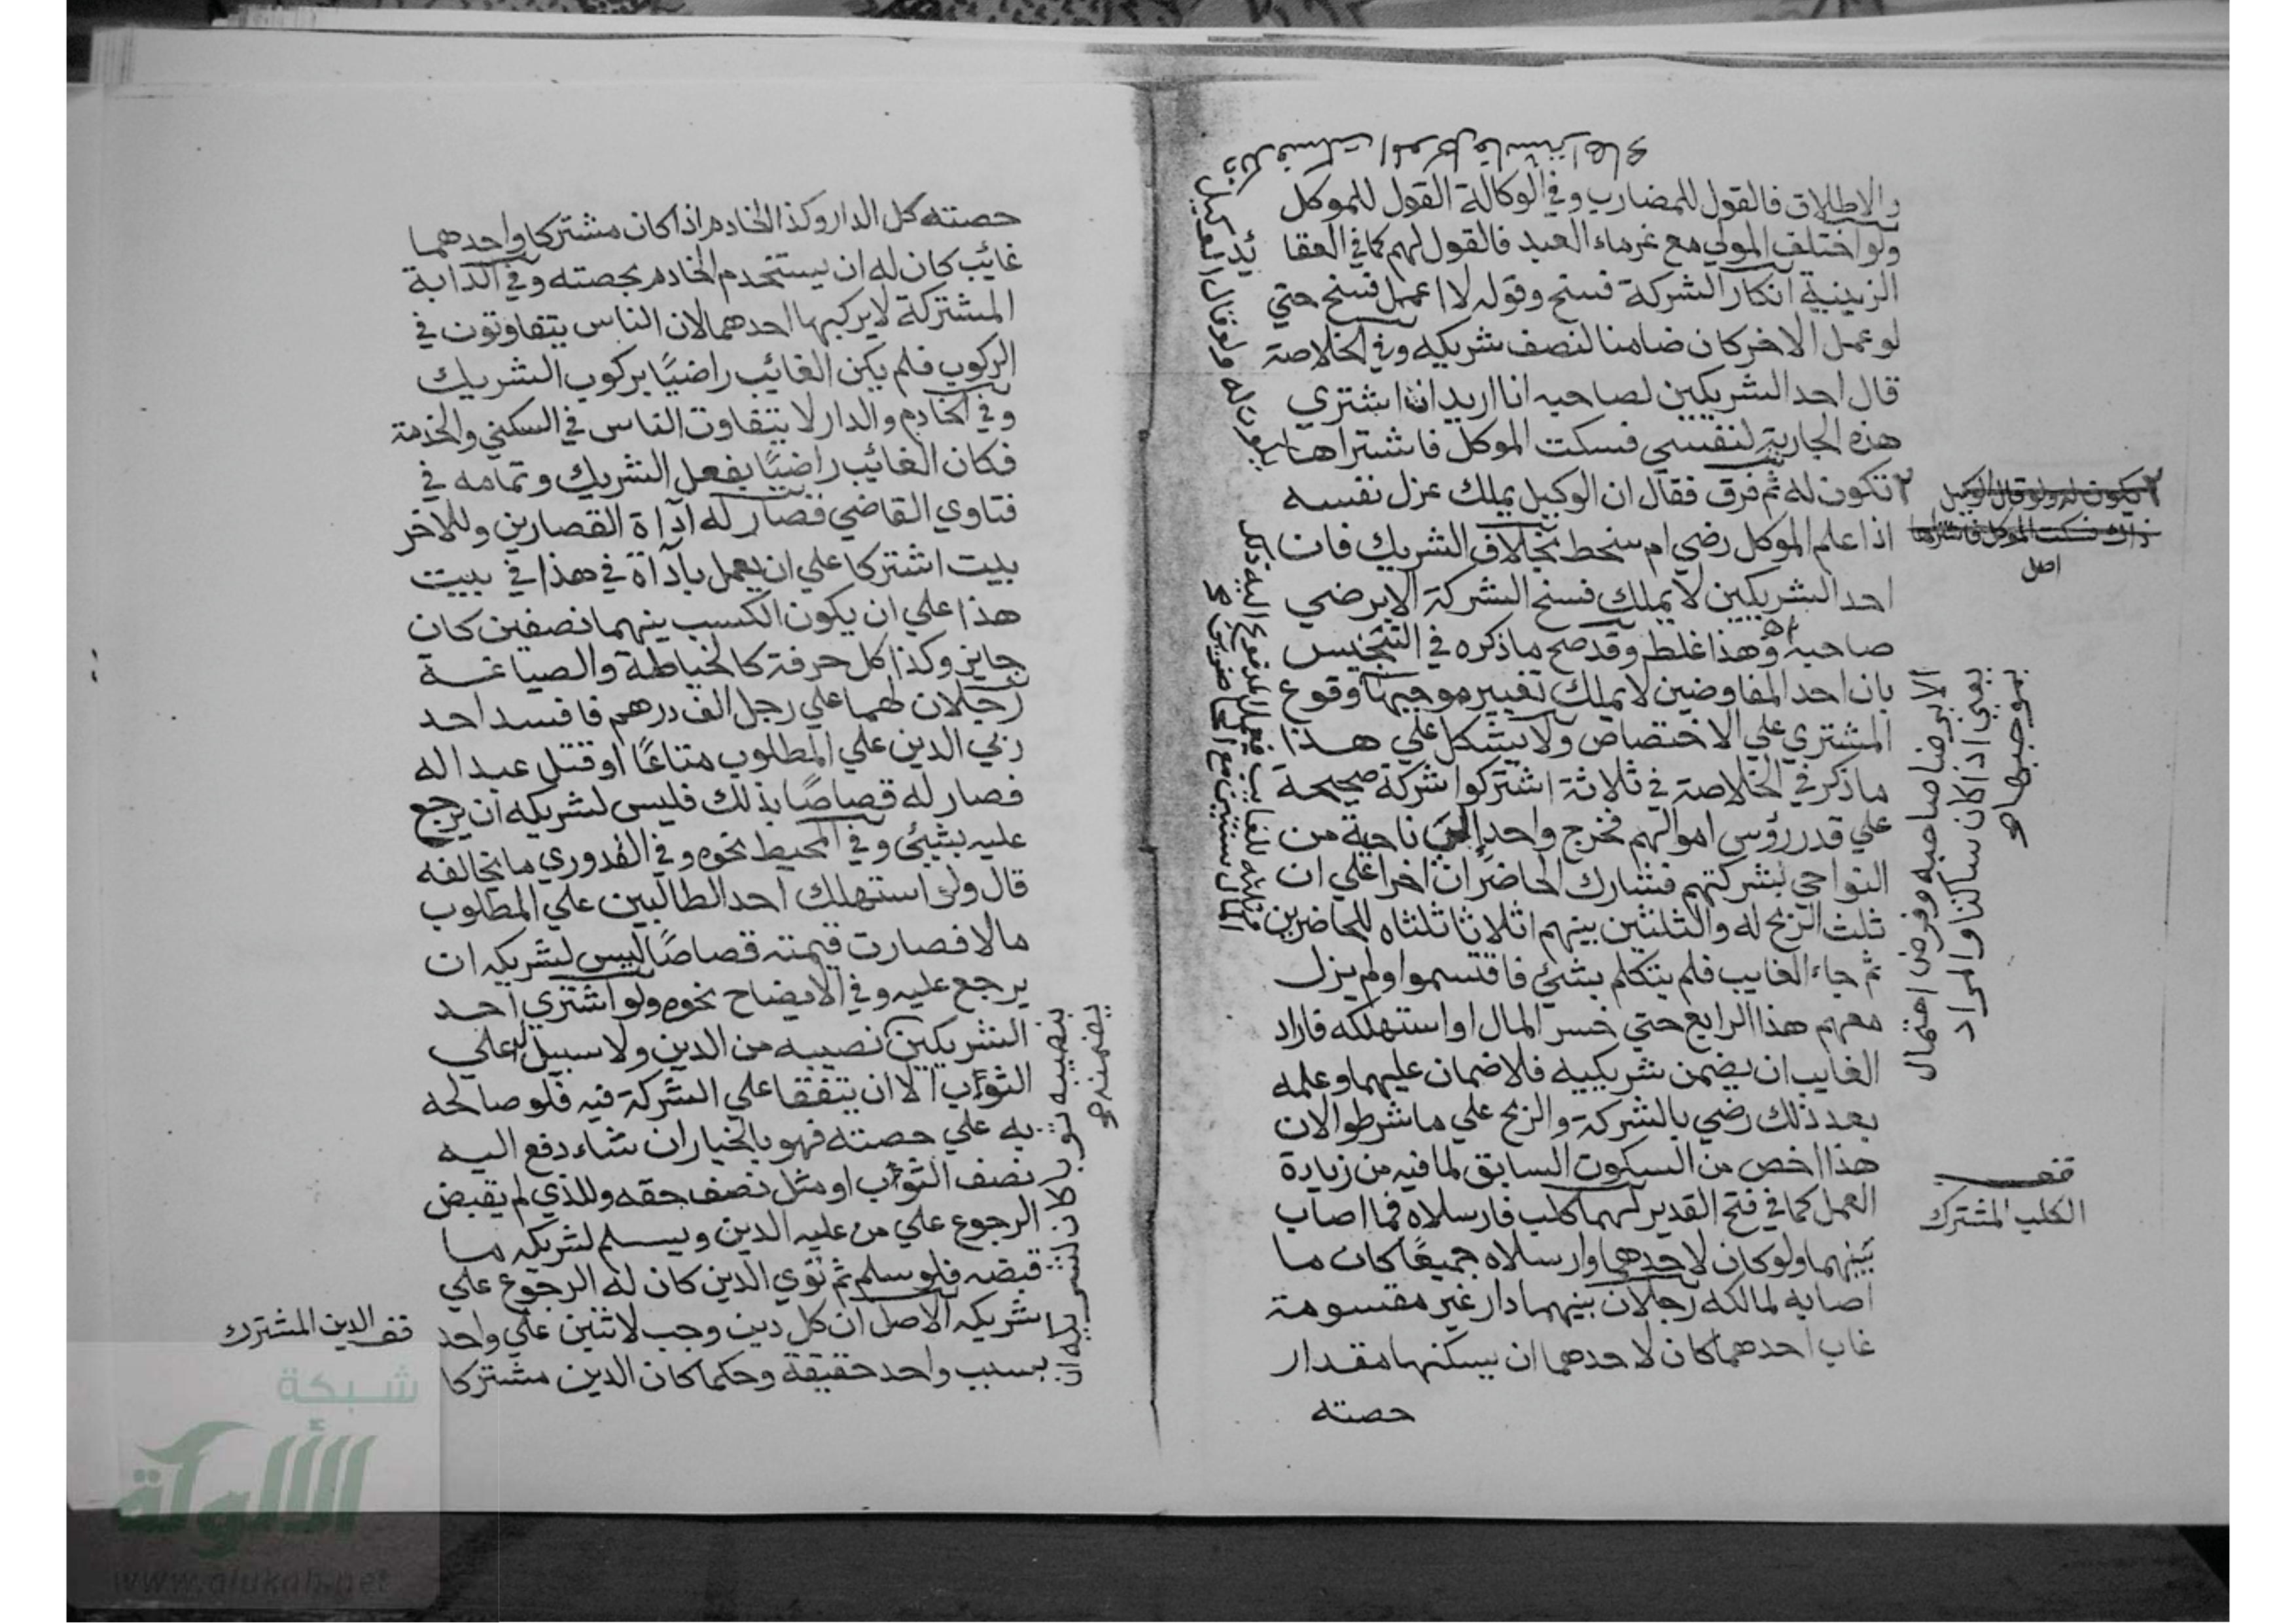 والاطلاق فالقول للمضارب وفي الوكالة القول للموكل
ولو اختلف المولي مع غرماء العبد فالقول لهم كما في العقا
يد
الزينية انكار الشركة فسخ وقوله لا اعمل فسخ حتي
لو عمل الاخر كان ضامنا لنصف شريكه وفي الخلاصة
قال احد الشريكين لصاحبه انا اريد ان اشتري
هذه الجارية لنفسي فسكت الموكل فاشتراها
٢ تكون له ثم فرق فقال ان الوكيل يملك عزل نفسه
اذا علم الموكل رضي ام سخط بخلاف الشريك فان
احد الشريكين لا يملك فسخ الشركة الا برضي
صاحبه اه وهذا غلط وقد صح ما ذكره في التجنيس
بان احد المفاوضين لا يملك تغيير موجبها وقوع
المشتري علي الاختصاص ولا يشكل علي هذا
ما ذكر في الخلاصة في ثلاثة اشتركوا شركة صحيحة
علي قدر رؤس اموالهم فخرج واحد إلى ناحية من
النواحي لشركتهم فشارك الحاضران اخرا علي ان
ثلث الربح له والثلثين بينهم اثلاثا ثلثاه للحاضرين
ثم جاء الغايب فلم يتكلم بشئ فاقتسموا ولم يزل
معهم هذا الرابع حتي خسر المال او استهلكه فاراد
الغايب ان يضمن شريكيه فلا ضمان عليهما وعلمه
بعد ذلك رضي بالشركة والربح علي ما شرطوا لان
هذا اخص من السكوت السابق لما فيه من زيادة
العمل كما في فتح القدير لهما كلب فارسلاه فما اصاب
بينهما ولو كان لاحدهما وارسلاه جميعًا كان ما
اصابه لمالكه رجلان بينهما دار غير مقسومة
غاب احدهما كان لاحدهما ان يسكنها مقدار
حصته
٢ تكون له ولو قال الوكيل
ذلك فسكت الموكل فاشتراها
اصل
الا برضا صاحبه وفرض احتمال
يعني اذا كان ساكتا والمراد
بموجبها
قف
الكلب المشترك
حصته كل الدار وكذا الخادم اذا كان مشتركا واحدهما
غائب كان له ان يستخدم الخادم بحصته وفي الدابة
المشتركة لا يركبها احدهما لان الناس يتفاوتون في
الركوب فلم يكن الغائب راضيًا بركوب الشريك
وفي الخادم والدار لا يتفاوت الناس في السكني والخدمة
فكان الغائب راضيًا بفعل الشريك وتمامه في
فتاوي القاضي قصار له اداة القصارين وللاخر
بيت اشتركا علي ان يعمل بأداة في هذا في بيت
هذا علي ان يكون الكسب بينهما نصفين كان
جايز وكذا كل حرفة كالخياطة والصياغة
رجلان لهما علي رجل الف درهم فافسد احد
ربي الدين علي المطلوب متاعًا او قتل عبدا له
فصار له قصاصًا بذلك فليس لشريكه ان يرجع
عليه بشيئ وفي المحيط نحوه وفي القدوري ما يخالفه
قال ولو استهلك احد الطالبين علي المطلوب
مالا فصارت قيمته قصاصًا ليس لشريكه ان
يرجع عليه وفي الايضاح نحوه ولو اشتري احد
الشريكين نصيبه من الدين ولا سبيل له علي
الثوب الا ان يتفقا علي الشركة فيه فلو صالحه
به علي حصته فهو بالخيار ان شاء دفع اليه
نصف الثوب او مثل نصف حقه وللذي لم يقبض
الرجوع علي من عليه الدين ويسلم لشريكه ما
قبضه فلو سلم ثم توي الدين كان له الرجوع علي
شريكه الاصل ان كل دين وجب لاثنين علي واحد
بسبب واحد حقيقة وحكما كان الدين مشتركا
بنصيبه ثوبا كان لشريكه ان
يضمنه
قف الدين المشترك
شبكة
الألوكة
www.alukah.net